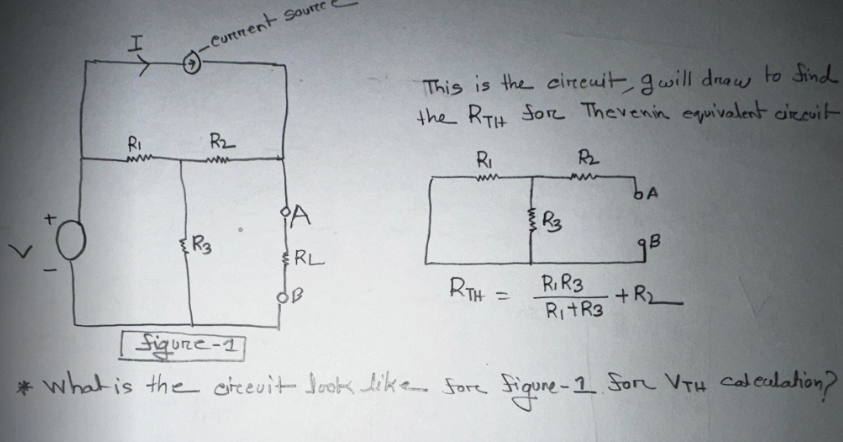 I
current source
This is the circuit, I will draw to find
the RTH for Thevenin equivalent circuit
R1
R2
R1
R2
A
R3
B
+
V
-
R3
A
RL
B
RTH = R1R3 / R1+R3 + R2
figure-1
* What is the circuit look like for figure-1 for VTH calculation?